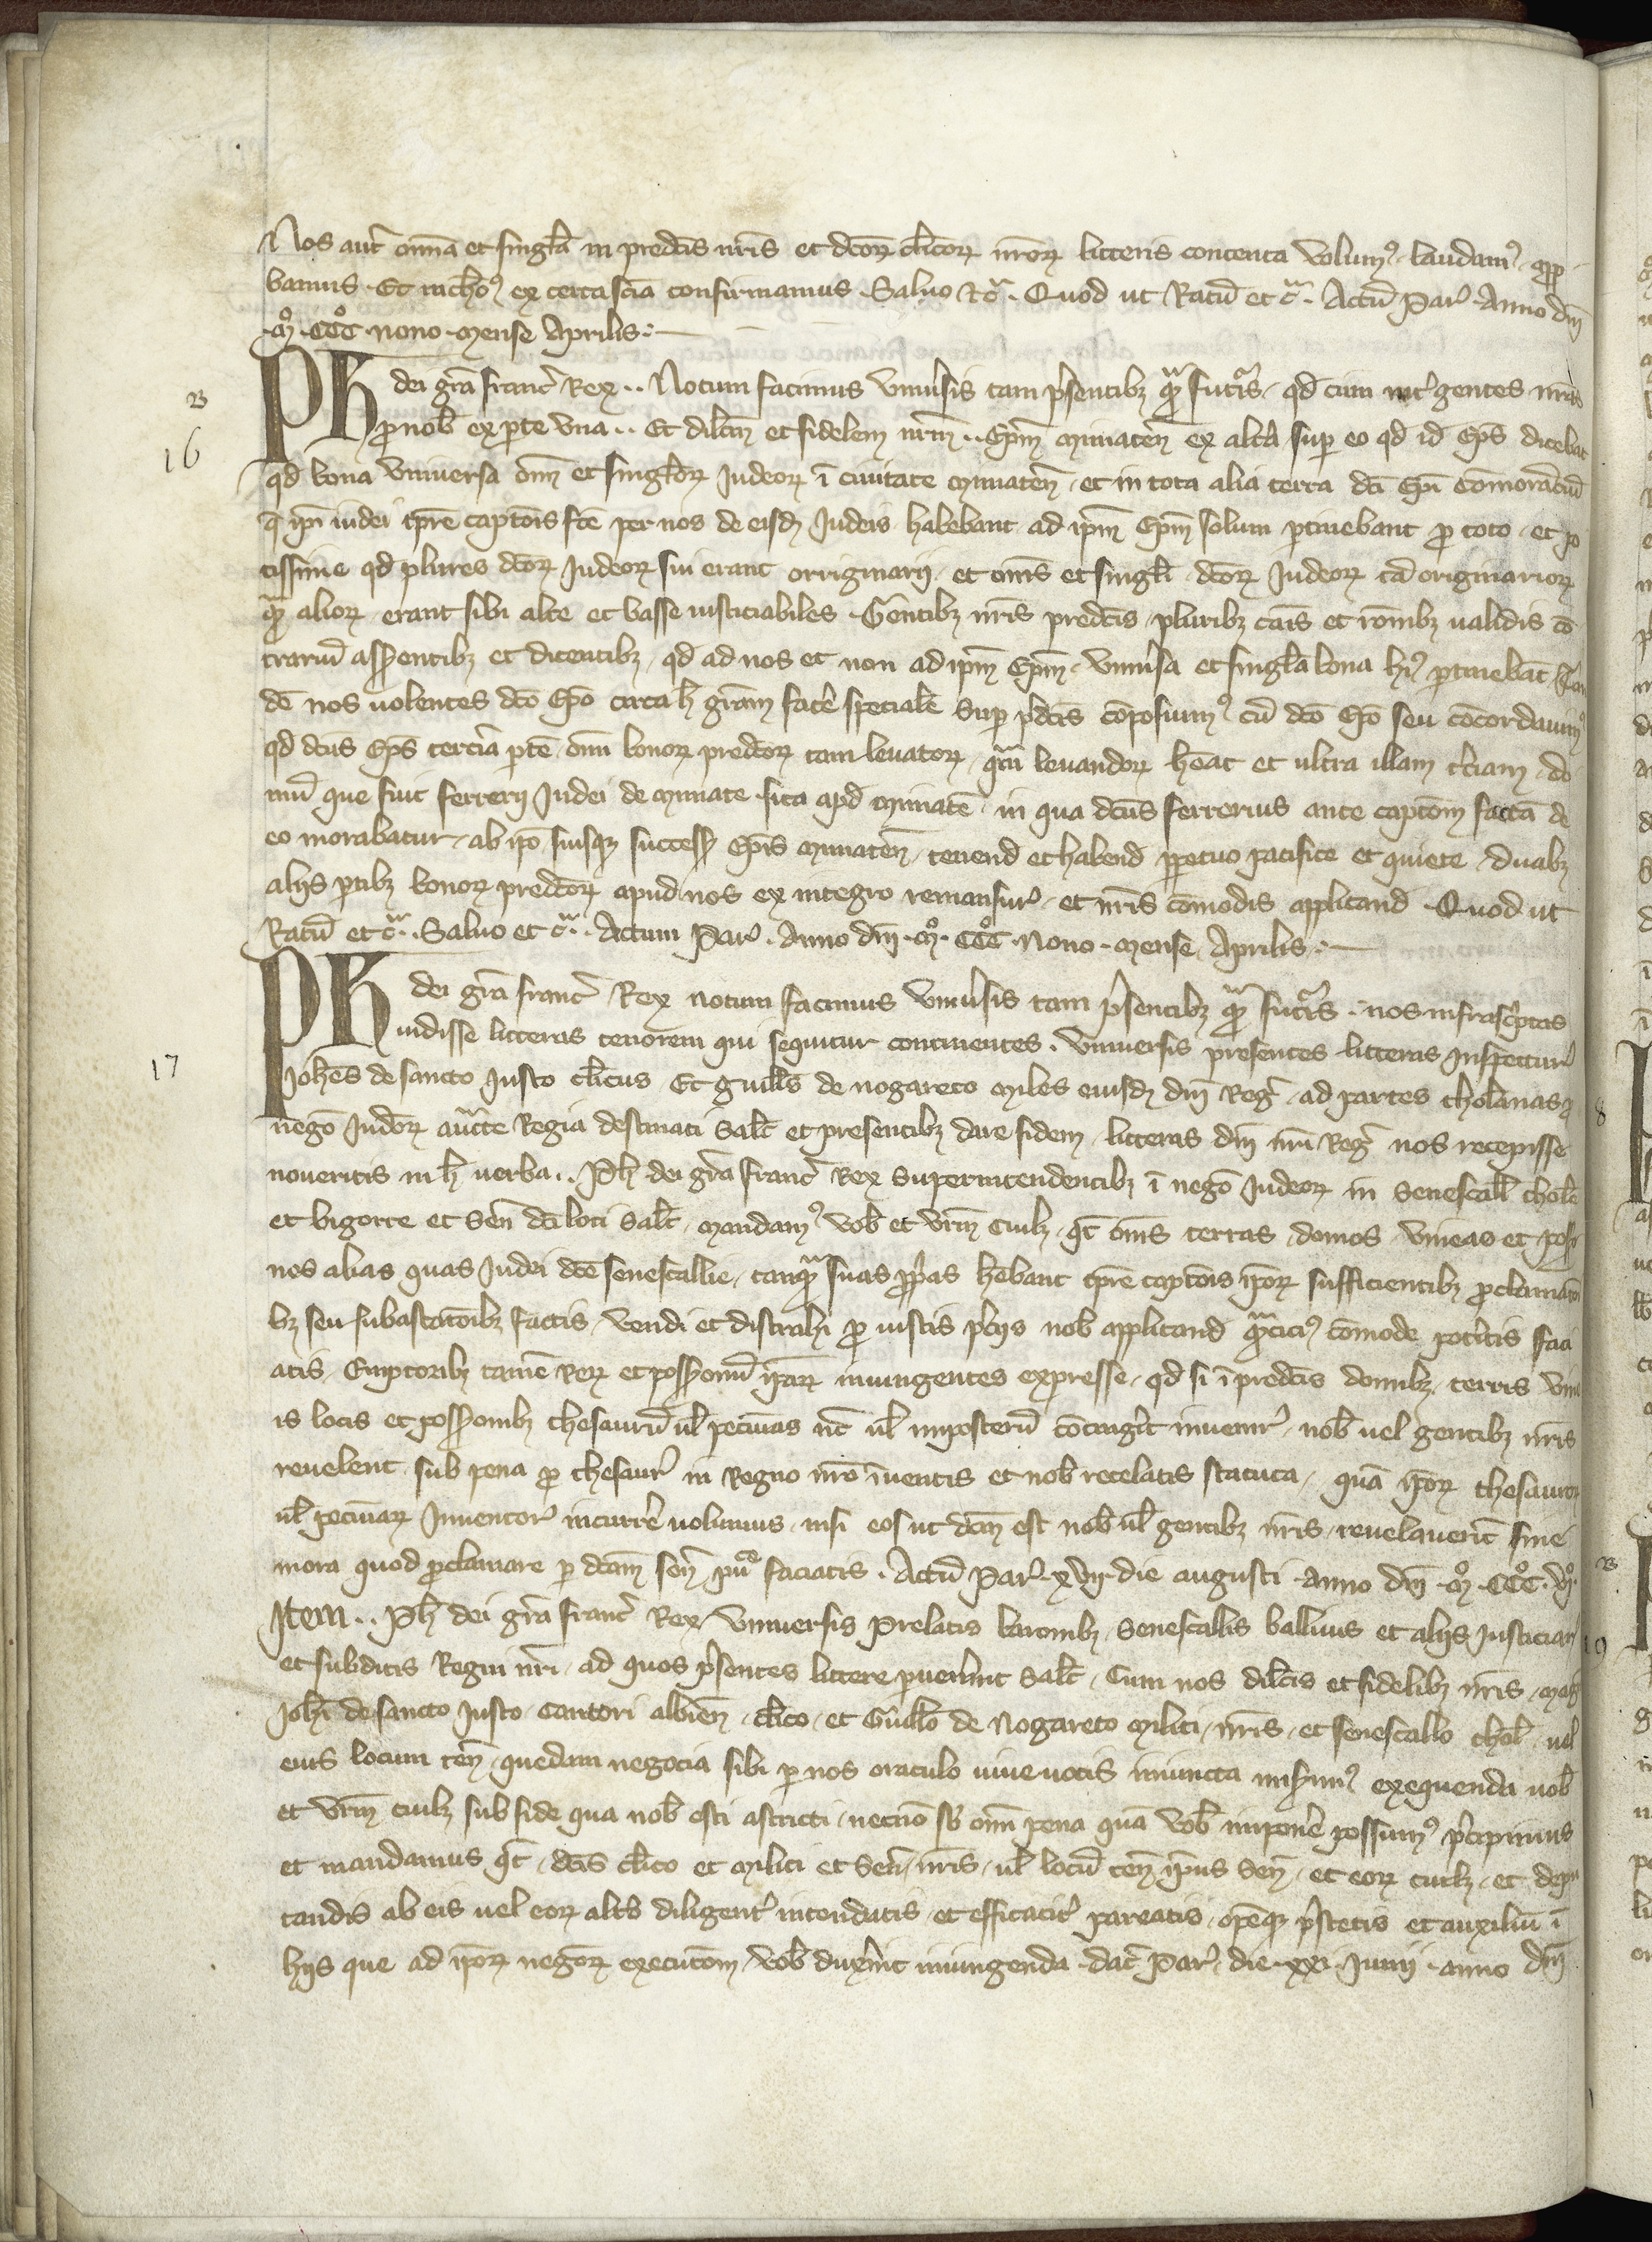 Nos autē om̄a et singl̄a in predc̄is nr̄is et dc̄oꝝ cl̄icoꝝ nr̄oꝝ litteris contenta volumꝰ laudamꝰ app
bamus Et inchoꝰ ex certa scīa confirmamus Saluo &c̄ Quod ut Ratū et c̄ Actū Par̄ Anno dn̄i
.M̊. CCC̊ nono mense Aprilis
B
16
Ph dei gr̄a franc̄ Rex Notum facimus vniu'sis tam p̄sentibꝫ qͣꝫ fut'is qd̄ cum int' gentes nr̄as
ꝓ nob̄ ex ꝑte vna Et dil̄cm̄ et fidelem nr̄m Ep̄m Mimaten̄ ex alt'a sup eo qd̄ id̄ Ep̄s dicebat
qd̄ bona vniuersa om̄ et singl̄oꝝ Iudeoꝝ ī ciuitate Mimaten̄ et in tota alia terra dc̄i Ep̄i com̄orāciū
q̄ ip̄i iudei tp̄re capc̄ois fc̄e per nos de eisdꝫ Iudeis habebant ad ip̄m Ep̄m solum ꝑtinebant ꝓ toto et po
tissime qd̄ plures dc̄oꝝ Iudeoꝝ sui erant orriginarij et om̄s et singl̄i dc̄oꝝ Iudeoꝝ tā originarioꝝ
qͣꝫ alioꝝ erant sibi alte et basse iusticiabiles Gentibꝫ nr̄is predc̄is pluribꝫ cāis et rōnibꝫ ualidis cō
trariū ass'entibꝫ et dicentibꝫ qd̄ ad nos et non ad ip̄m Ep̄m vniu'sa et singl̄a bona hꝰ ꝑtinebāt Tan
dē nos uolentes dc̄o Ep̄o circa h̄ gr̄am fac'e specialē sup p̄dc̄is cōposuimꝰ cū dc̄o Ep̄o seu cōcordauimꝰ
qd̄ dc̄us Ep̄s terciā ꝑtē om̄i bonoꝝ predc̄oꝝ tam leuatoꝝ qͣm leuandoꝝ hēat et ultra illam t'ciam do
mū que fuit ferrerij Iudei de Mimate sita apd̄ Mimatē in qua dc̄us ferrerius ante capc̄om factā de
eo morabatur ab ip̄o suisqꝫ success' Ep̄is Mimaten̄ tenend̄ et habend̄ ꝑpetuo pacifice et quiete duabꝫ
alijs ꝑtibꝫ bonoꝝ predc̄oꝝ apud nos ex integro remansur' et nr̄is cōmodis applicand̄ Quod ut
Ratū et c̄ Saluo et c̄ Actum Par̄ Anno dn̄i M̊ CCC̊ Nono mense Aprilis
17
Ph dei gr̄a franc̄ Rex notum facimus vniu'sis tam p̄sentibꝫ qͣꝫ fut'is nos infrasc'ptas
uidisse litteras tenorem qui sequitur continentes Vniuersis presentes litteras inspectur'
Joh̄es de sancto Iusto cl̄icus Et Guill̄s de nogareto Miles eiusdꝫ dn̄i Reg' ad partes thol̄anas ꝓ
negō Iudōꝝ auct̄te Regia destinati Salt̄ et presentibꝫ dare fidem litteras dn̄i nr̄i Reg' nos recepisse
noueritis in h̄ uerba Ph dei gr̄a franc̄ Rex Superintendentibꝫ ī negō Iudeoꝝ in Senescall̄ thol̄
et bigorre et Sen̄ dc̄i loci Salt̄ Mandamꝰ vob̄ et vr̄m cuilꝫ qt̄ om̄s terras domos vineas et poss'
nes alias quas Iudei dc̄e senescallie tanqͣꝫ suas ꝓp̄as hēbant tp̄re capc̄ois ip̄oꝝ sufficientibꝫ ꝓclamatōi
bꝫ seu subastatōibꝫ factis vendi et distrahi ꝓ iustis p̄cijs nob̄ applicand̄ qͣꝫciciꝰ cōmode pot'itis faci
atis Emptoribꝫ tamē Reꝝ et poss'onū ip̄aꝝ iniungentes expresse qd̄ si ī predc̄is domibꝫ terris vine
is locis et poss'onibꝫ thesaurū ul̄ pecūias nc̄ ul̄ imposterū cōting'it inuenir' nob̄ uel gentibꝫ nr̄is
reuelent sub pena ꝓ thesaur' in Regno nr̄o īuentis et nob̄ recelatis statuta quā ip̄oꝝ thesauroꝝ
ul̄ pecūiaꝝ Inuentor' incurr'e uolumus nisi eos ut dc̄m est nob̄ ul̄ gentibꝫ nr̄is reuelauerīt sine
mora quod ꝓclamare ꝑ dc̄am sen̄ puᵉ faciatis Actū Par̄ xvij die augusti anno dn̄i M̊ CCC̊ vj̊
Item Ph dei gr̄a franc̄ Rex Vniuersis Prelatis baronibꝫ Senescallis balliuis et alijs Iusticiar'
et subditis Regni nr̄i ad quos p̄sentes littere ꝑuen'int Salt̄ Cum nos dil̄cis et fidelibꝫ nr̄is Mag'
Joh̄i de sancto Iusto Cantori albien̄ cl̄ico et Guill̄o de Nogareto Militi nr̄is et senescallo thol̄ uel
eius locum ten̄ quedam negocia sibi ꝑ nos oraculo uiue uocis iniuncta mis'imꝰ exequenda uob̄
et vr̄m cuilꝫ sub fide qua nob̄ esti astricti necnō sb̄ om̄i pena quā vob̄ impon'e possumꝰ p̄cipimus
et mandamus qt̄ dc̄is cl̄ico et Militi et Sen̄ nr̄is ul̄ locū ten̄ ip̄ius Sen̄ et eoꝝ cuilꝫ et depu
tandis ab eis uel eoꝝ alt'o diligent' intendatis et efficacit' pareatis opēqꝫ p̄stetis et auxiliū ī
hijs que ad ip̄oꝝ negōꝝ execuc̄om vob̄ dux'int iniungenda dat̄ Par̄ die xxi Iunij anno dn̄i